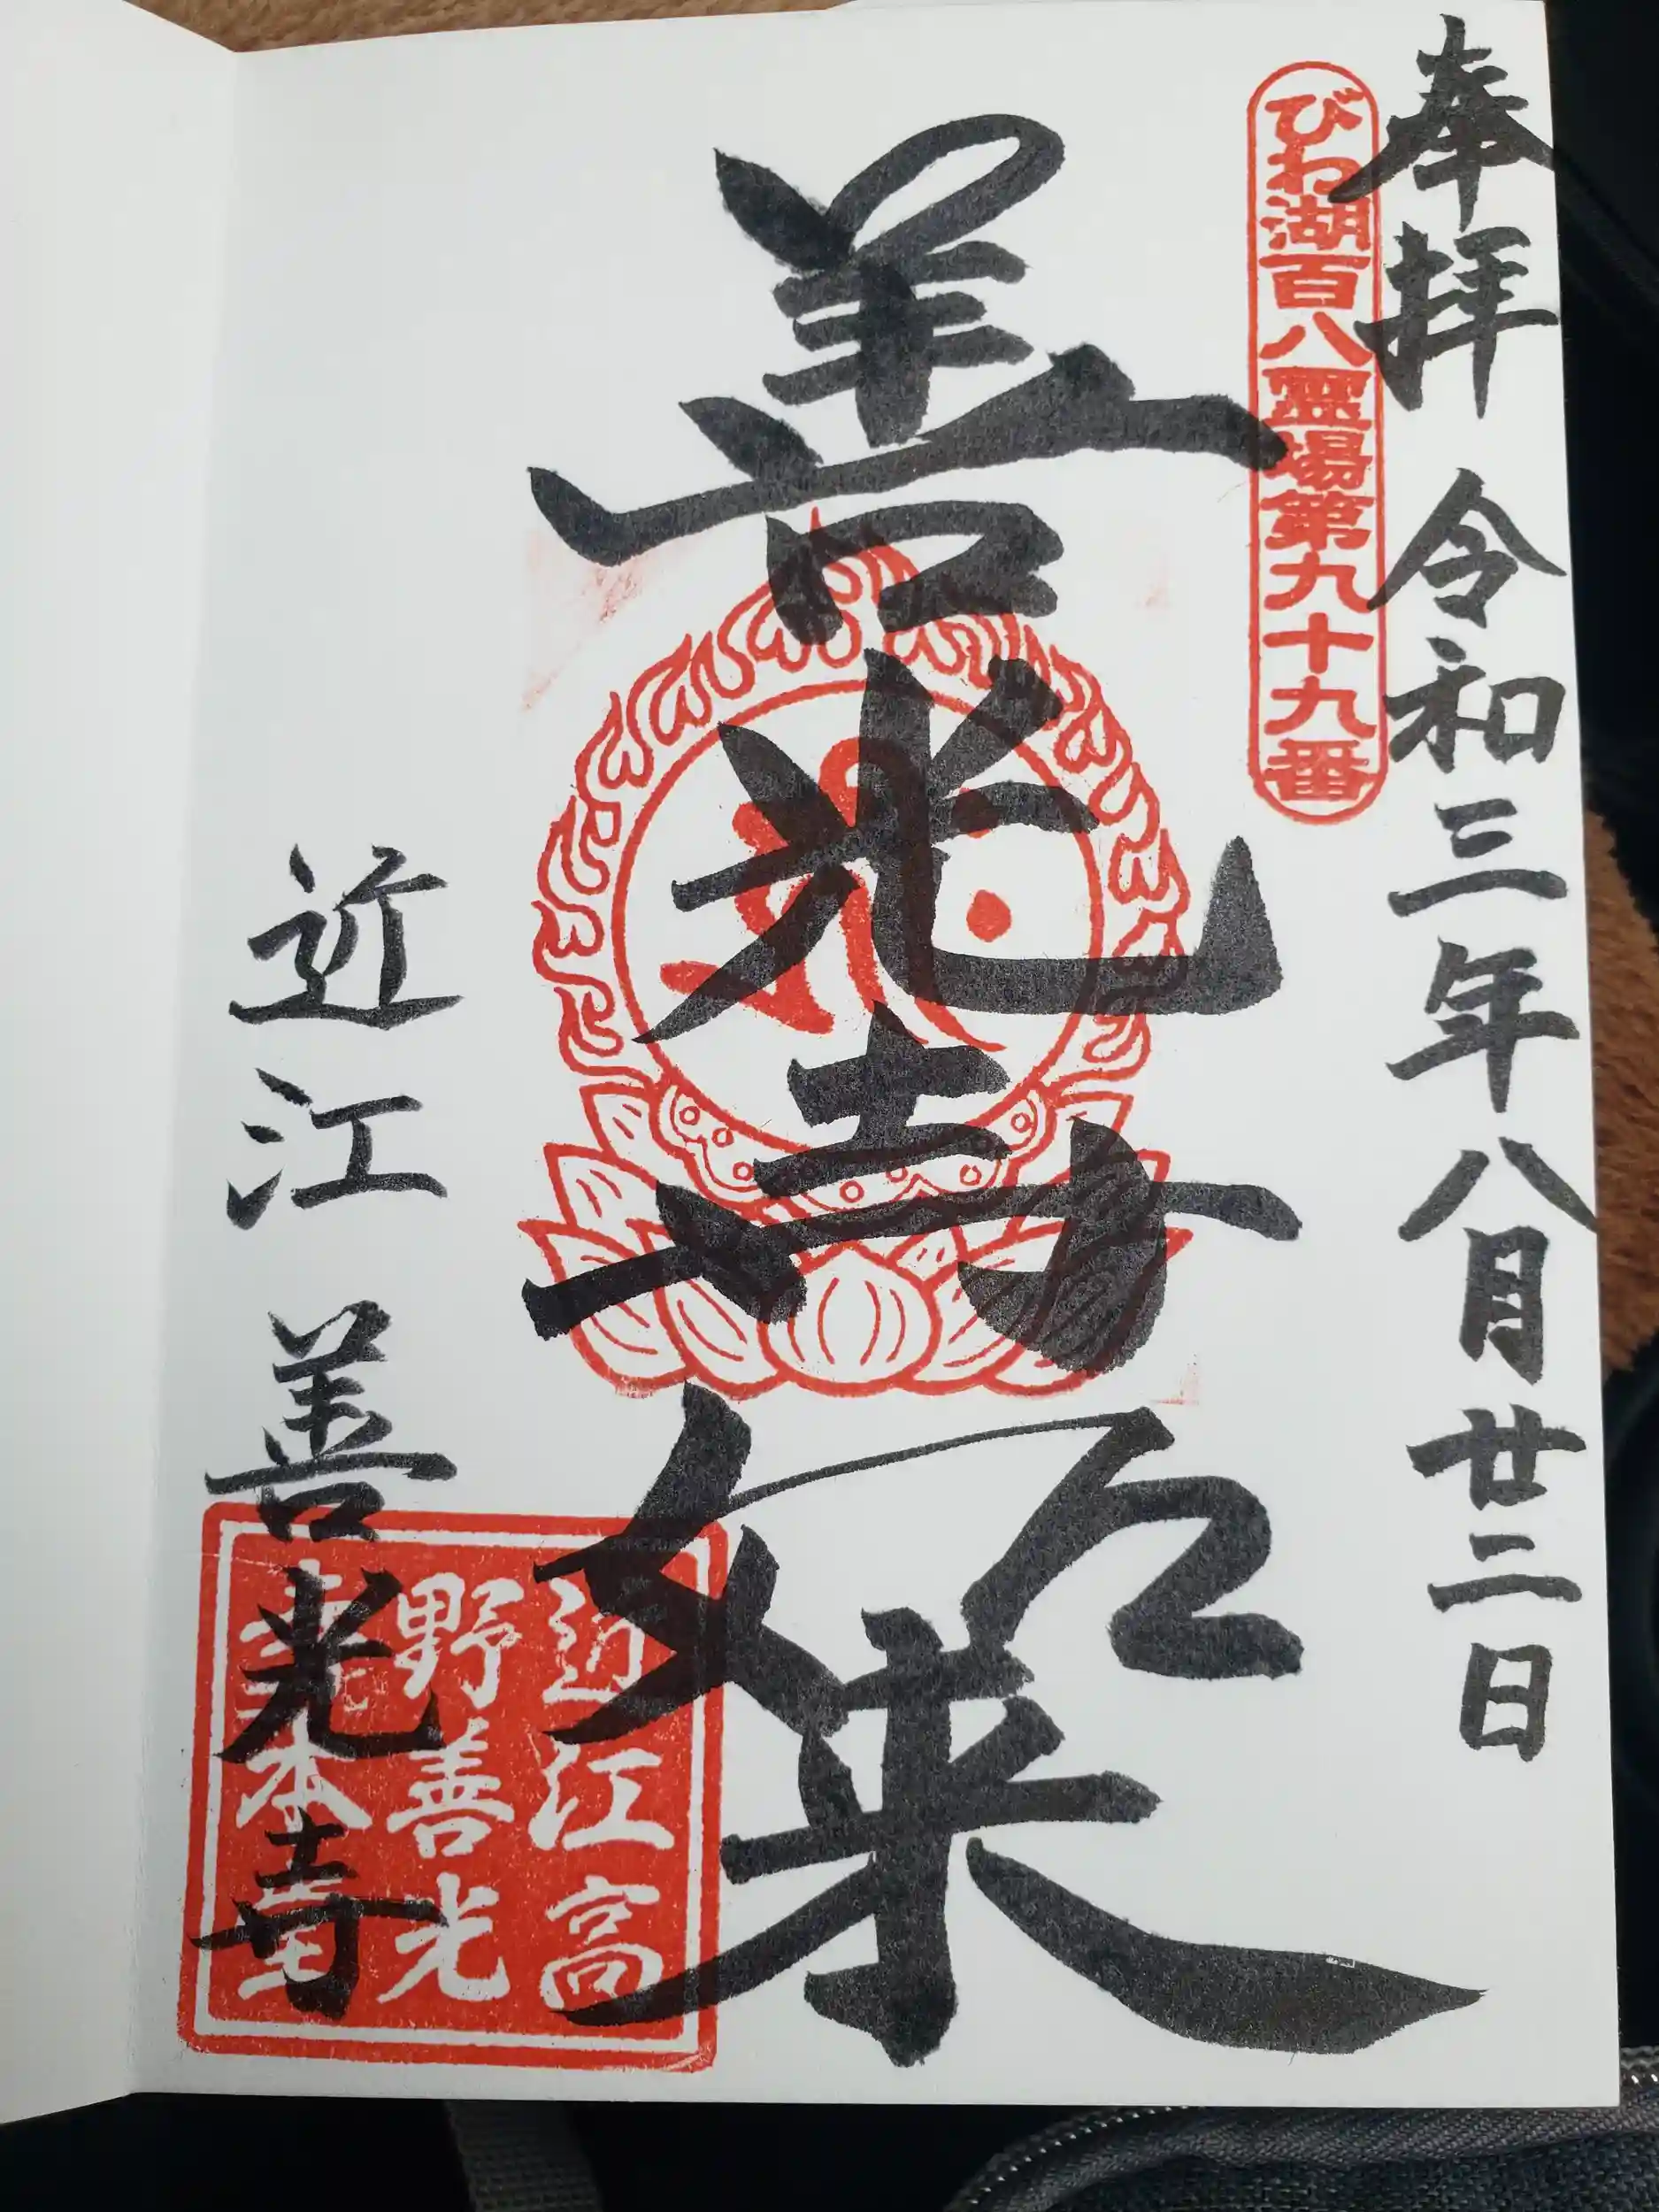 奉拝 令和三年八月廿二日
びわ湖百八霊場第九十九番
善光寺如来
近江 善光寺
近江高
野善光
寺本堂